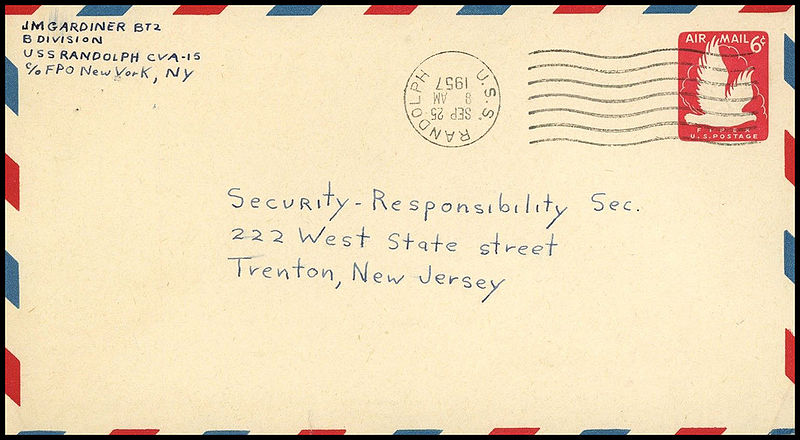 JMGARDINER BT2
B DIVISION
USS RANDOLPH CVA-15
c/o FPO New York, NY
U.S.S. RANDOLPH
SEP 25
8 AM
1957
AIR MAIL 6¢
FIPEX
U.S. POSTAGE
Security-Responsibility Sec.
222 West State street
Trenton, New Jersey